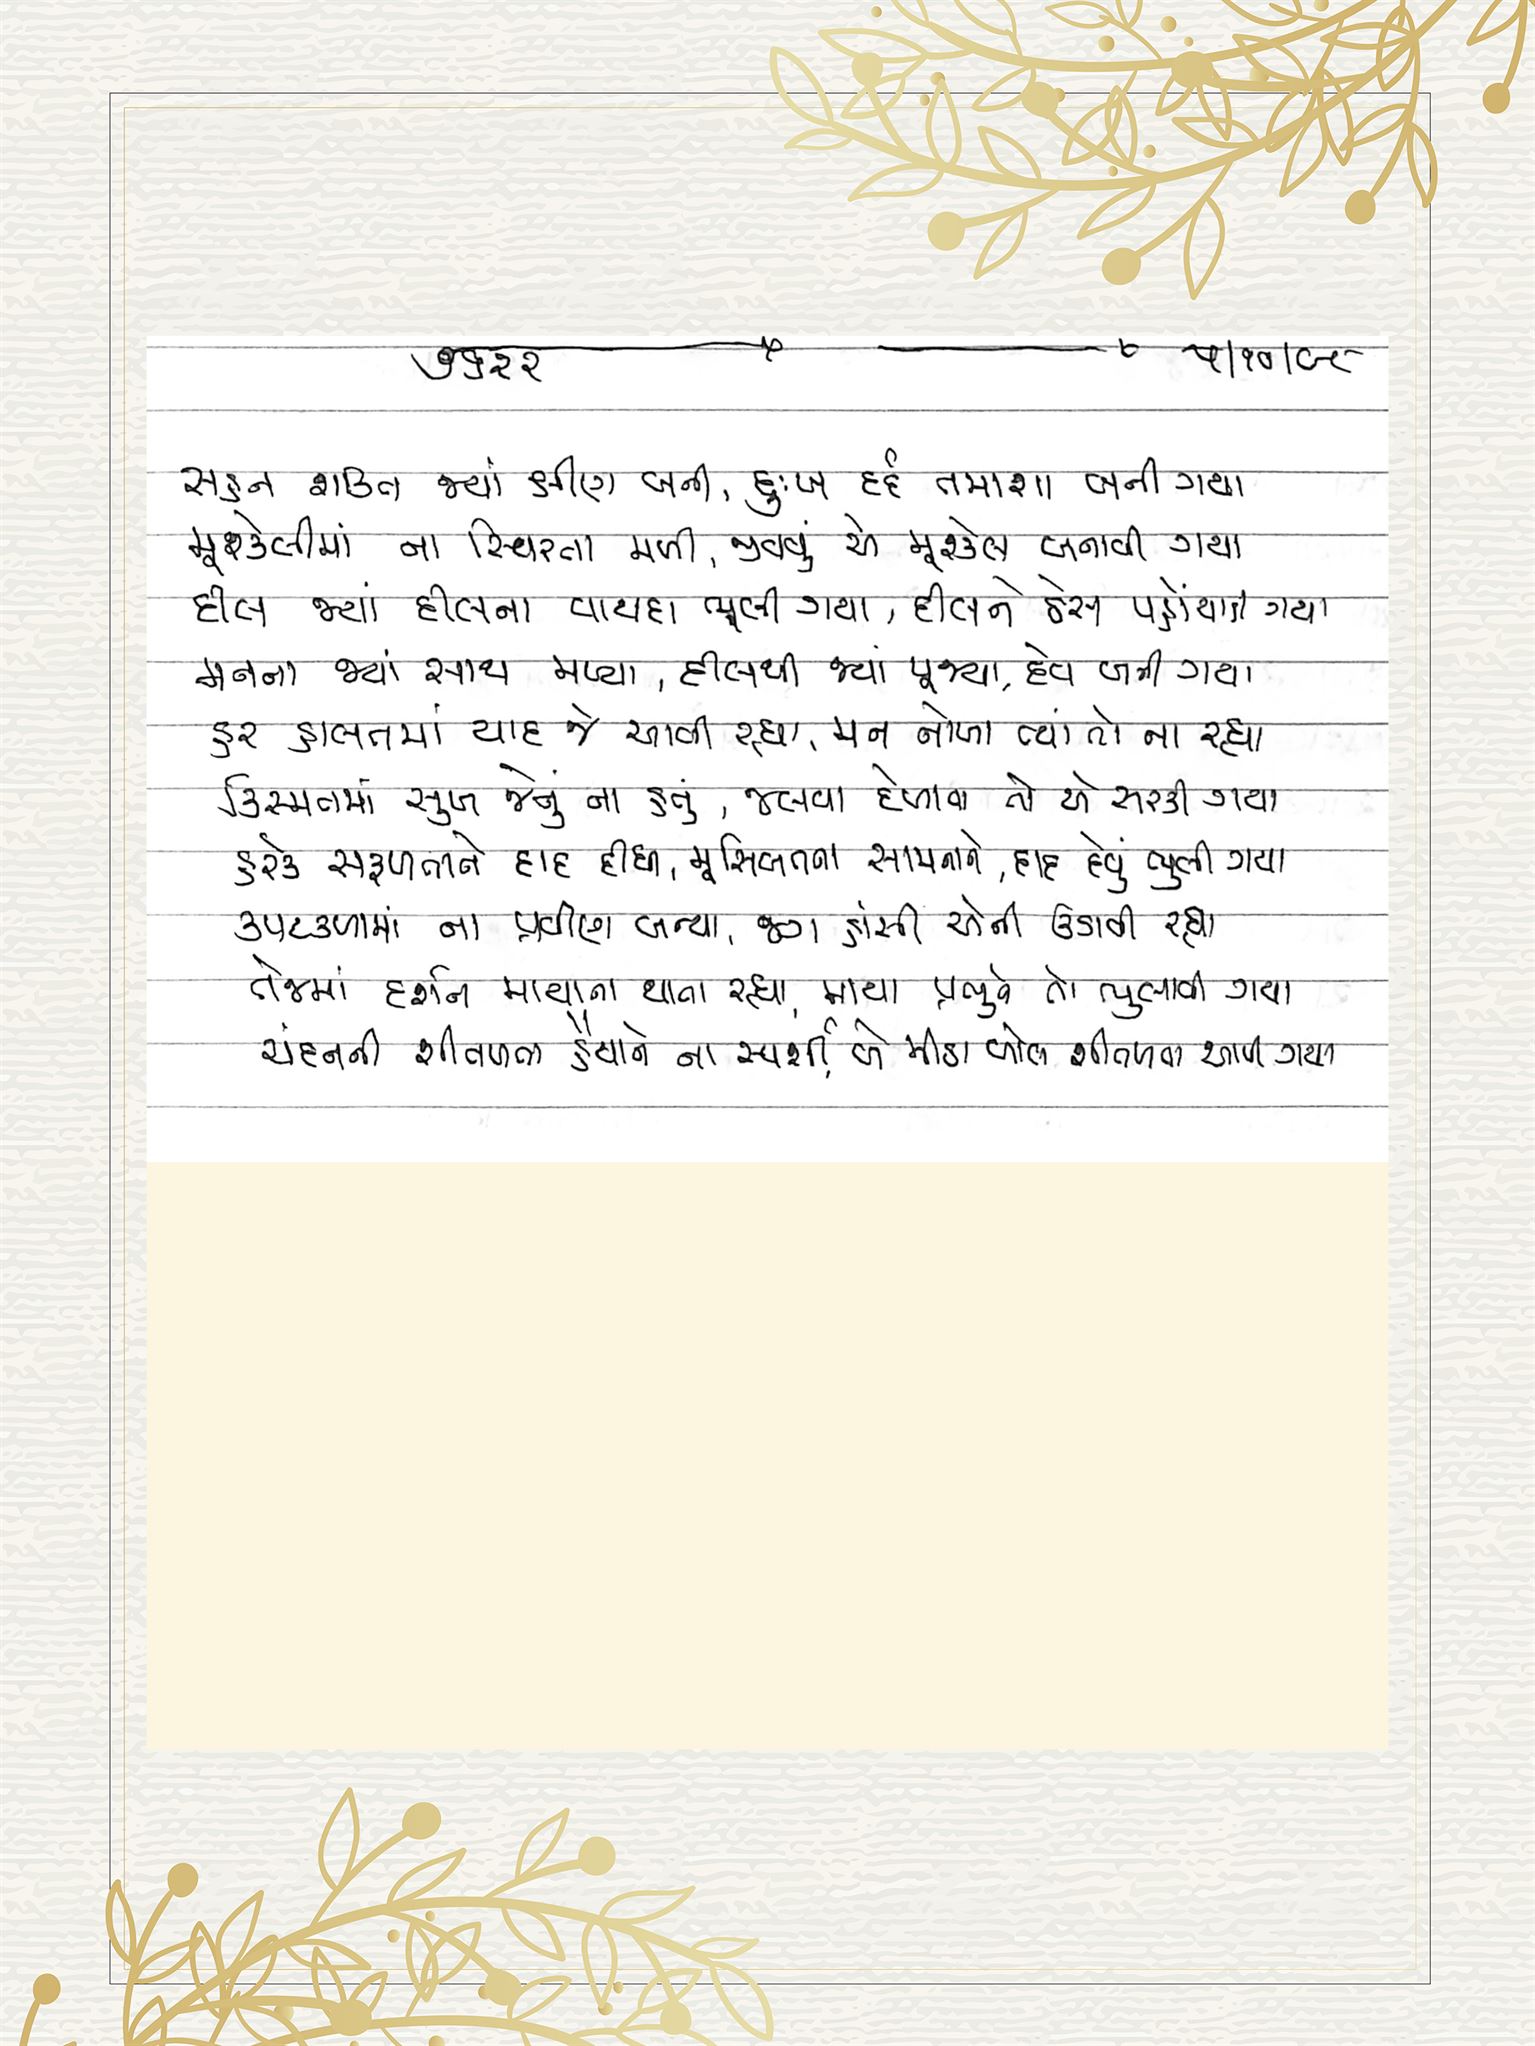 ૭૬૨૨ ૫/૧૦/૯૮
સહન શક્તિ જ્યાં ક્ષીણ બની, દુઃખ દર્દ તમાશા બની ગયા
મૂશ્કેલીમાં ના સ્થિરતા મળી, જીવવું એ મૂશ્કેલ બનાવી ગયા
દીલ જ્યાં દીલના વાયદા ભૂલી ગયા, દીલને ઠેસ પહોંચાડી ગયા
મનના જ્યાં સાથ મળ્યા, દીલથી જ્યાં પૂજ્યા, દેવ બની ગયા
હર હાલતમાં યાદ જે આવી રહ્યા, મન નોખા ત્યાં તો ના રહ્યા
કિસ્મતમાં સુખ જેનું ના હતું, જલવા દેખાવા તો એ સરકી ગયા
હરેક સફળતાને દાદ દીધી, મૂસિબતના સામનાને, દાદ દેવું ભુલી ગયા
કપટકળામાં ના પ્રવીણ બન્યા, જગ હાંસી એની ઉડાવી રહ્યા
તેજમાં દર્શન માયાના થાતા રહ્યા, માયા પ્રભુને તો ભુલાવી ગયા
ચંદનની શીતળતા હૈયાને ના સ્પર્શી, બે મીઠા બોલ શીતળતા આપી ગયા